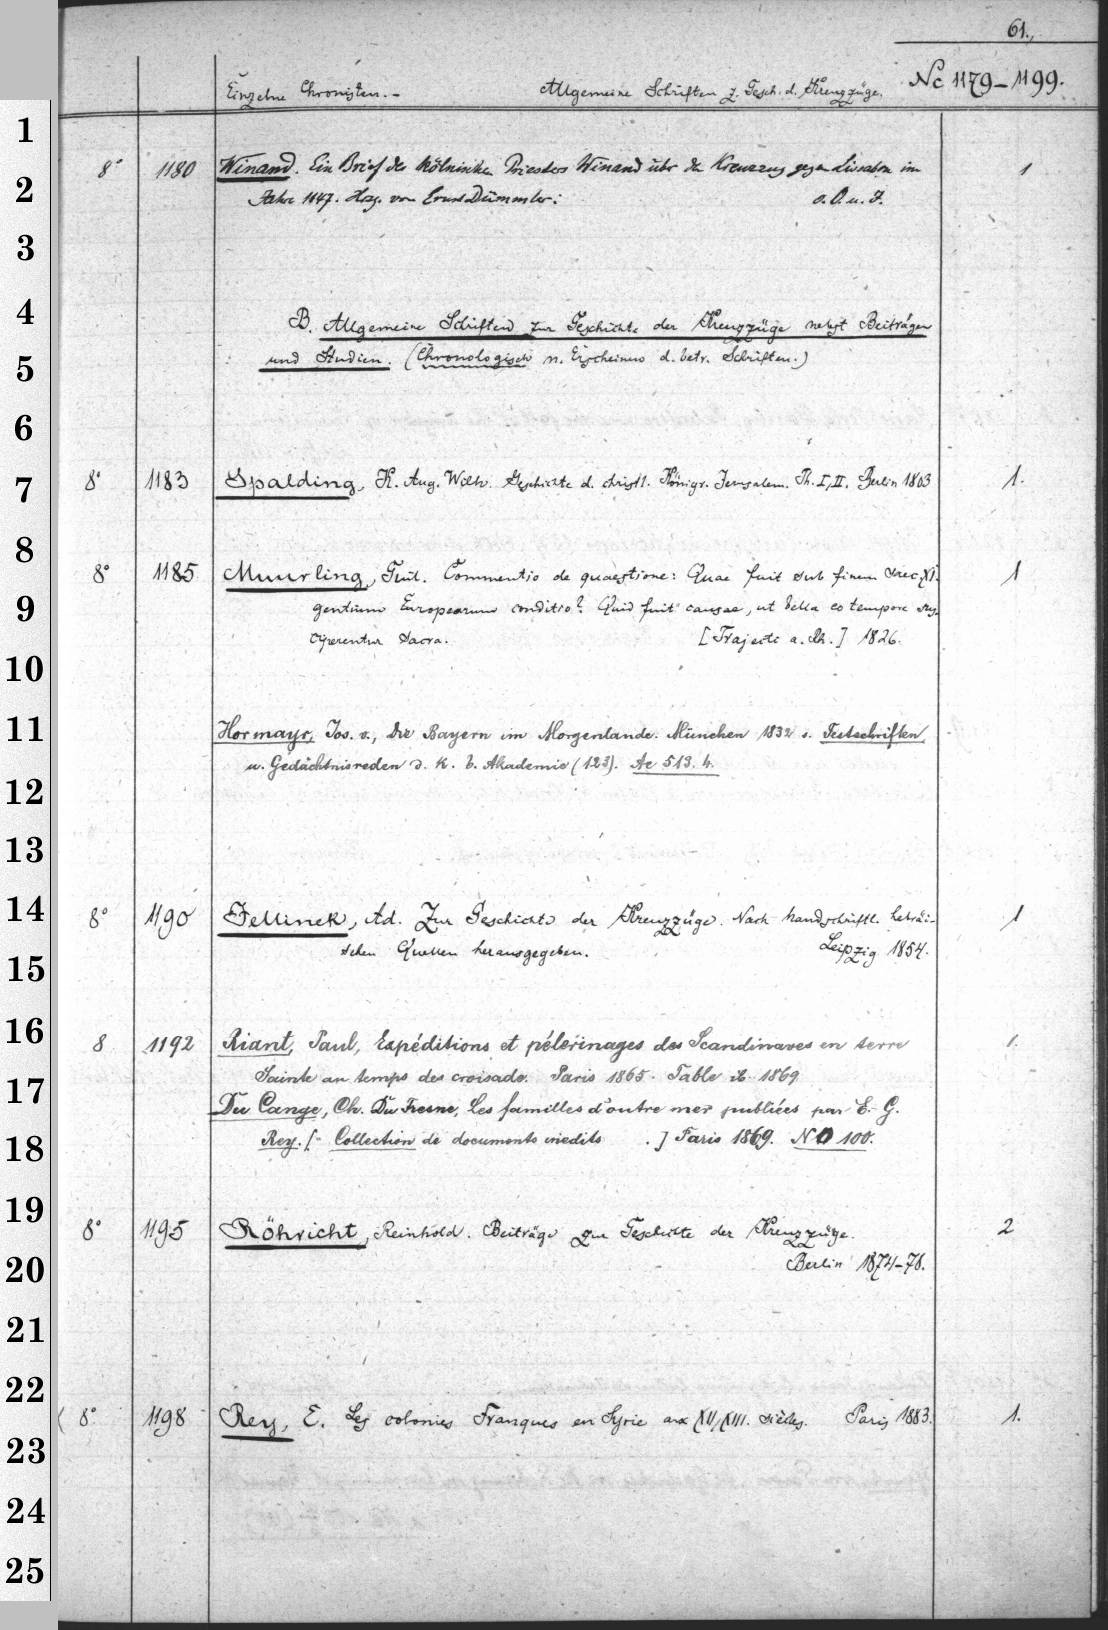 61.
Einzelne Chronisten.- Allgemeine Schriften z. Gesch. d. Kreuzzüge. Nc 1179-1199.
1
8° 1180 Winand. Ein Brief des kölnischen Priesters Winand über den Kreuzzug gegen Lissabon im 1
2
Jahre 1147. Hrsg. von Ernst Dümmler. o. O. u. J.
3
4
B. Allgemeine Schriften zur Geschichte der Kreuzzüge nebst Beiträgen
5
und Studien. (Chronologisch n. Erscheinen d. betr. Schriften.)
6
7
8° 1183 Spalding, K. Aug. Wilh. Geschichte d. christl. Königr. Jerusalem. Th. I, II. Berlin 1803 1.
8
8° 1185 Muurling, Guil. Commentio de quaestione: Quae fuit sub finem saec. XI. 1
9
gentium Europearum conditio? Quid fuit causae, ut bella eo tempore sus-
ciperentur sacra. [Trajecti a. Rh.] 1826.
10
11
Hormayr, Jos. v., Die Bayern im Morgenlande. München 1832 s. Festschriften
u. Gedächtnisreden d. k. b. Akademie (123). Ac 513. 4.
12
13
14
8° 1190 Jellinek, Ad. Zur Geschichte der Kreuzzüge. Nach handschriftl. hebräi- 1
15
schen Quellen herausgegeben. Leipzig 1854.
16
8 1192 Riant, Paul, Expéditions et pélerinages des Scandinaves en terre 1.
Sainte au temps des croisade. Paris 1865. Table ib. 1869
17
Du Cange, Ch. Du Fresne, Les familles d'outre mer publiées par E. G.
18
Rey. [- Collection de documents inédits .] Paris 1869. NO 100.
19
8° 1195 Röhricht, Reinhold. Beiträge zur Geschichte der Kreuzzüge. 2
20
Berlin 1874-78.
21
22
8° 1198 Rey, E. Les colonies Franques en Syrie aux XII/XIII. siècles. Paris 1883. 1.
23
24
25